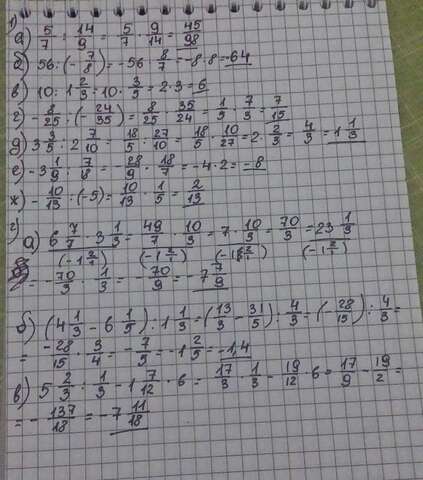 1)
а) 5/7 : 14/9 = 5/7 · 9/14 = 45/98
б) 56 : (-7/8) = -56 · 8/7 = -8·8 = -64
в) 10 : 1 2/3 = 10 · 3/5 = 2·3 = 6
г) -8/25 : (-24/35) = 8/25 · 35/24 = 1/5 · 7/3 = 7/15
д) 3 3/5 : 2 7/10 = 18/5 : 27/10 = 18/5 · 10/27 = 2 · 2/3 = 4/3 = 1 1/3
е) -3 1/9 : 7/8 = -28/9 · 8/7 = -4·2 = -8
ж) -10/13 : (-5) = 10/13 · 1/5 = 2/13
2)
а) 6 7/7 · 3 1/3 = 49/7 · 10/3 = 7 · 10/3 = 70/3 = 23 1/3
= -70/3 · 1/3 = -70/9 = -7 7/9
б) (4 1/3 - 6 1/5) : 1 1/3 = (13/3 - 31/5) : 4/3 = (-28/15) : 4/3 =
= -28/15 · 3/4 = -7/5 = -1 2/5 = -1,4
в) 5 2/3 : 1/3 - 1 7/12 · 6 = 17/3 · 1/3 - 19/12 · 6 = 17/9 - 19/2 =
= -137/18 = -7 11/18